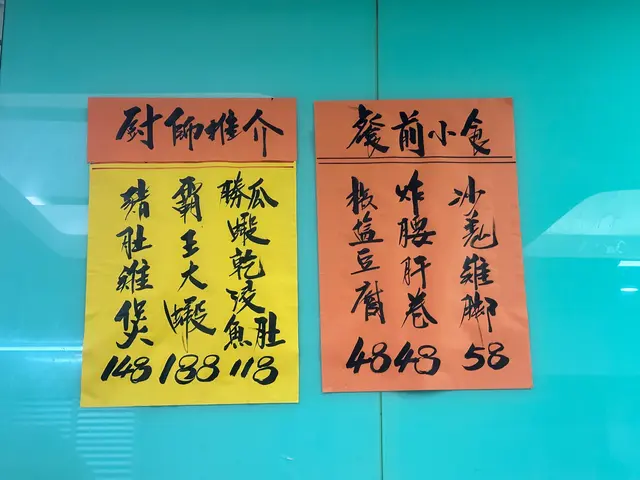 廚師推介
勝瓜蝦乾浸魚肚
118
霸王大蝦
188
豬肚雞煲
148
餐前小食
沙薑雞腳
58
炸腰肝卷
48
椒盐豆腐
48